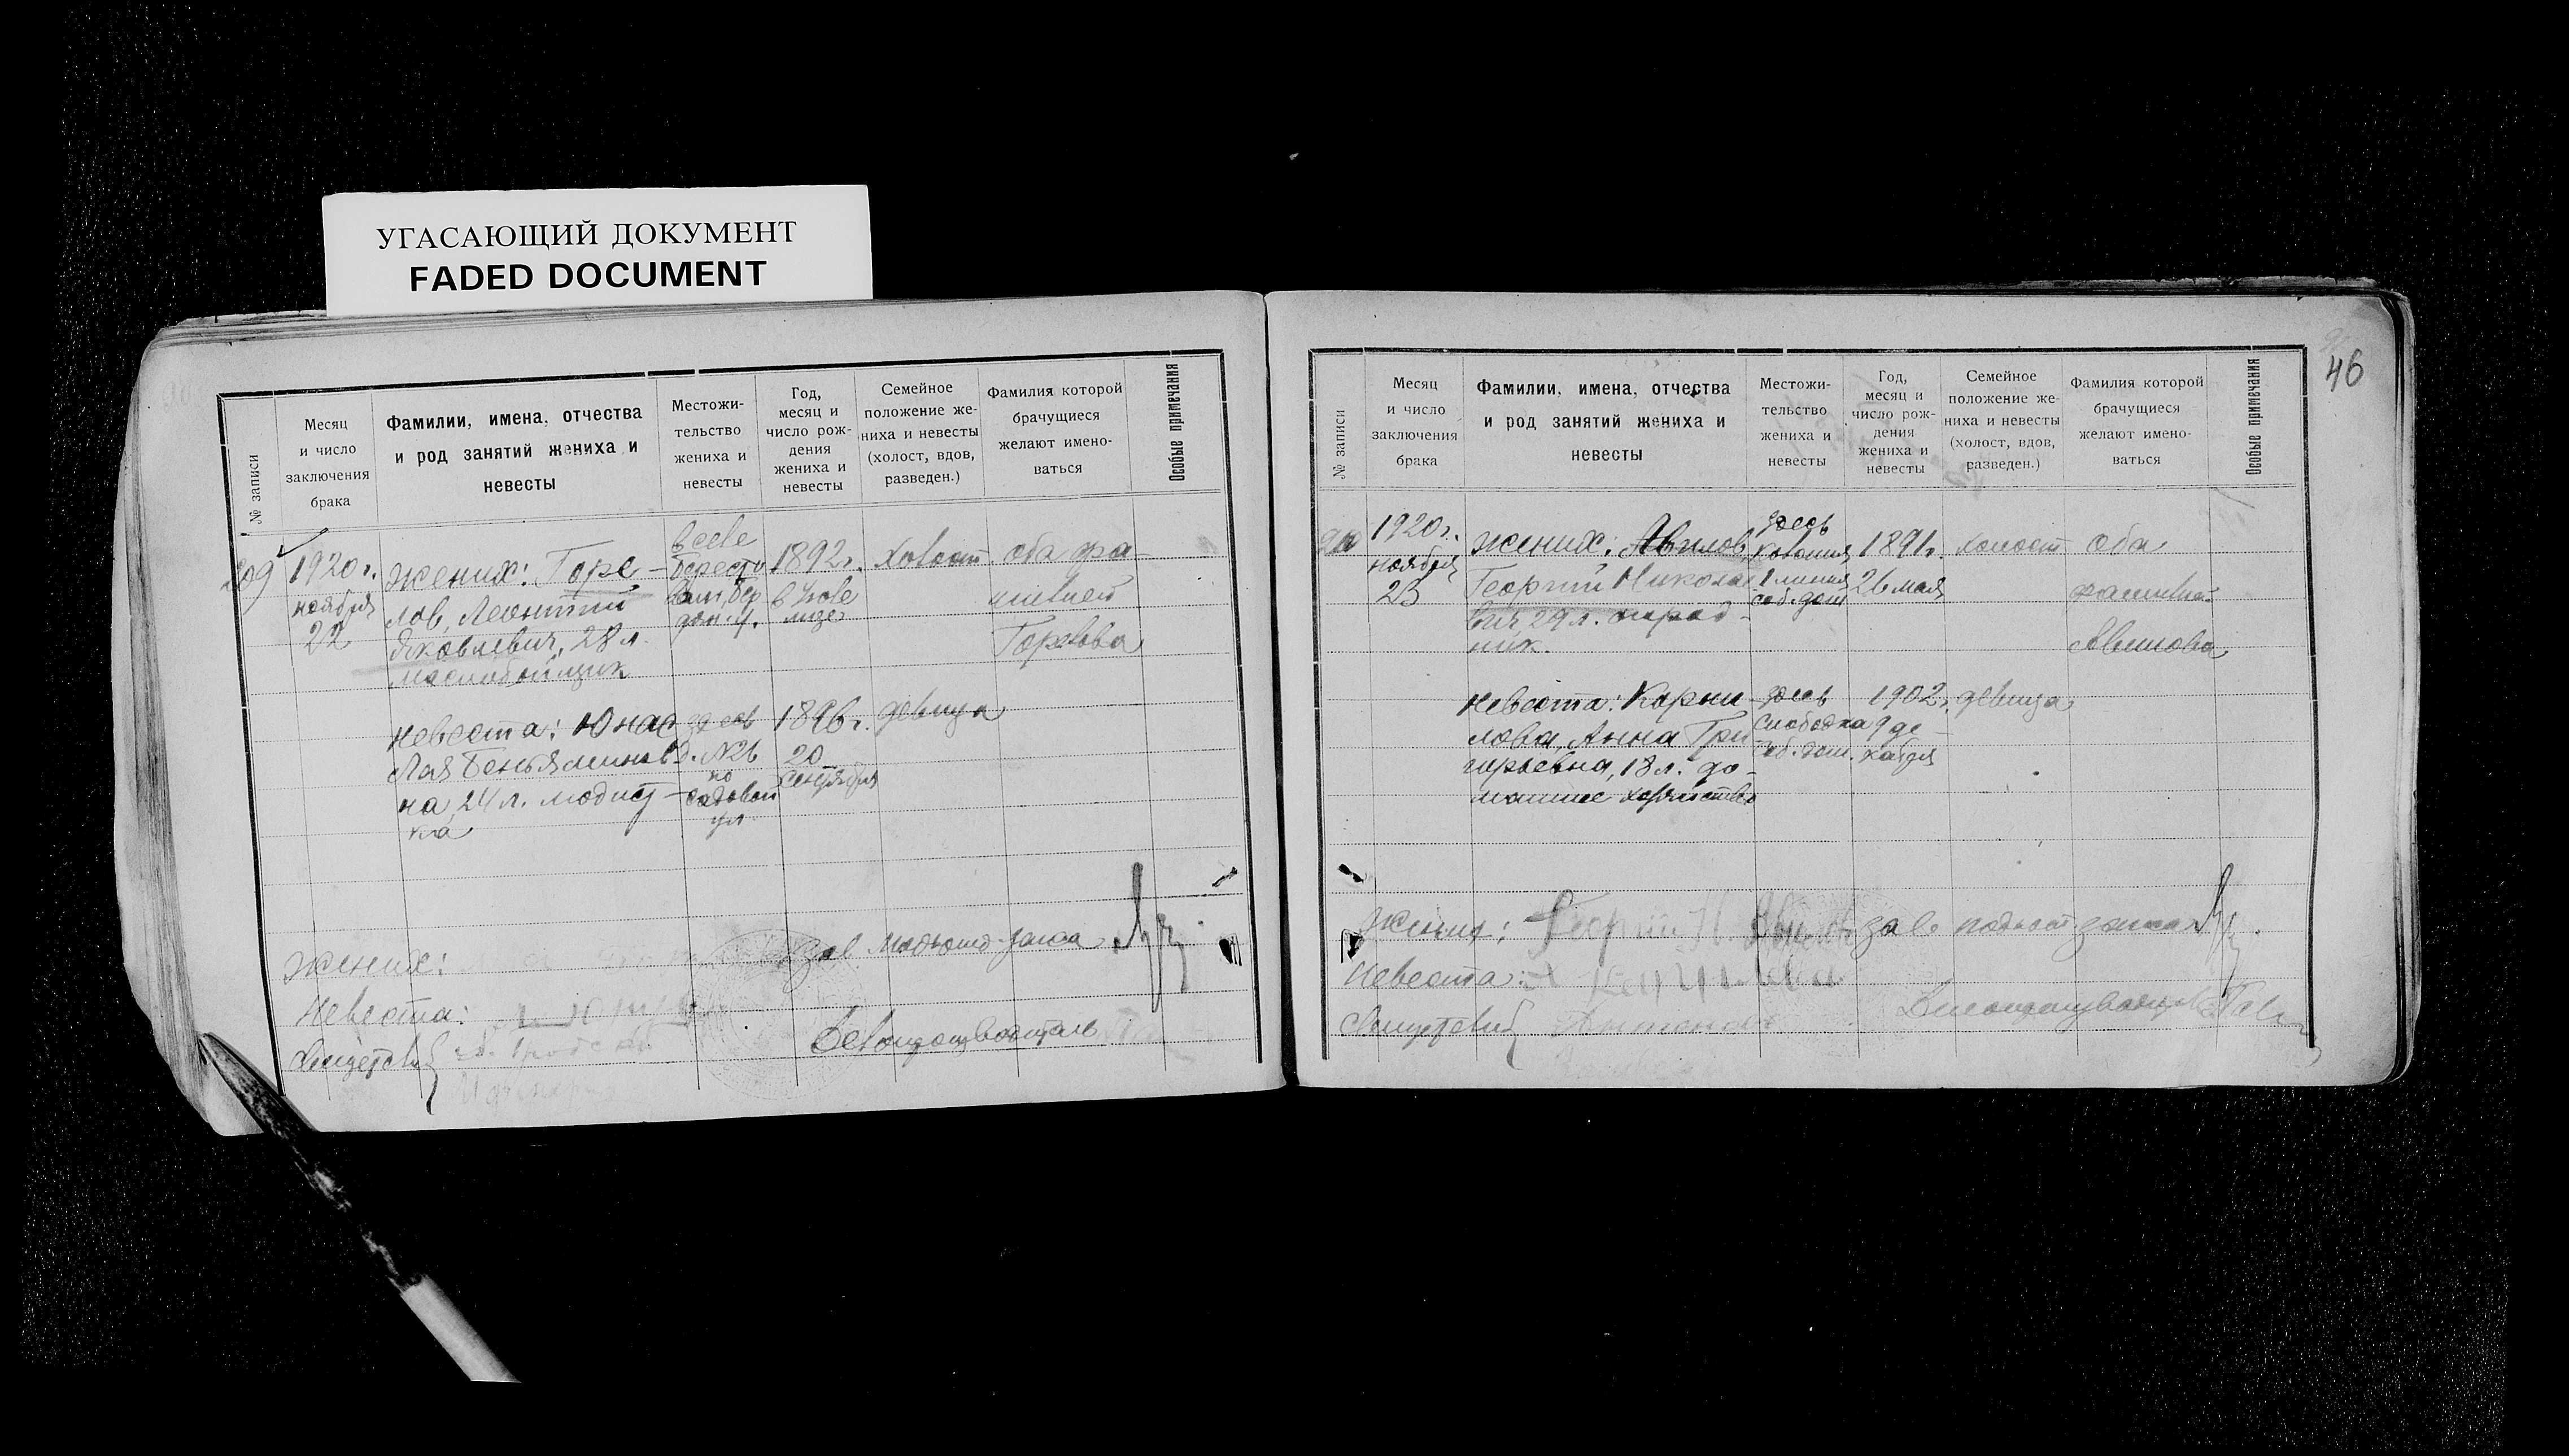 УГАСАЮЩИЙ ДОКУМЕНТ
FADED DOCUMENT
№ записи
Месяц
и число
заключения
брака
Фамилии, имена, отчества
и род занятий жениха и
невесты
Местожи-
тельство
жениха и
невесты
Год,
месяц и
число рож-
дения
жениха и
невесты
Семейное
положение же-
ниха и невесты
(холост, вдов,
разведен.)
Фамилия которой
брачущиеся
желают имено-
ваться
Особые примечания
209
1920г.
ноября
22
жених: Горе-
лов, Леонтий
Яковлевич, 28 л.
маслобойщик
1892г.
холост
оба фа-
милией
Горелова
невеста: Юнас
Лая Беньяминов
на, 24 л. модист-
ка
здесь
д. №26
по
садовой
ул
1896г.
20
сентября
девица
жених:
Невеста:
Свидетели
Зав. подотд. загса
Делопроизводитель
46
№ записи
Месяц
и число
заключения
брака
Фамилии, имена, отчества
и род занятий жениха и
невесты
Местожи-
тельство
жениха и
невесты
Год,
месяц и
число рож-
дения
жениха и
невесты
Семейное
положение же-
ниха и невесты
(холост, вдов,
разведен.)
Фамилия которой
брачущиеся
желают имено-
ваться
Особые примечания
210
1920г.
ноября
23
жених: Авилов
Георгий Никола
вич 29 л. огород-
ник.
здесь
Колония
1 линия
соб. дом
1891г.
26 мая
холост
оба
фамилией
Авилова
Невеста: Корни
лова, Анна Гри
горьевна, 18 л. до-
машнее хозяйство
здесь
Слободка
соб. дом.
1902г.
9 де-
кабря
девица
жених: Георгий Н. Авилов
зав. подотд. загса
Невеста:
Свидетели
Делопроизводитель